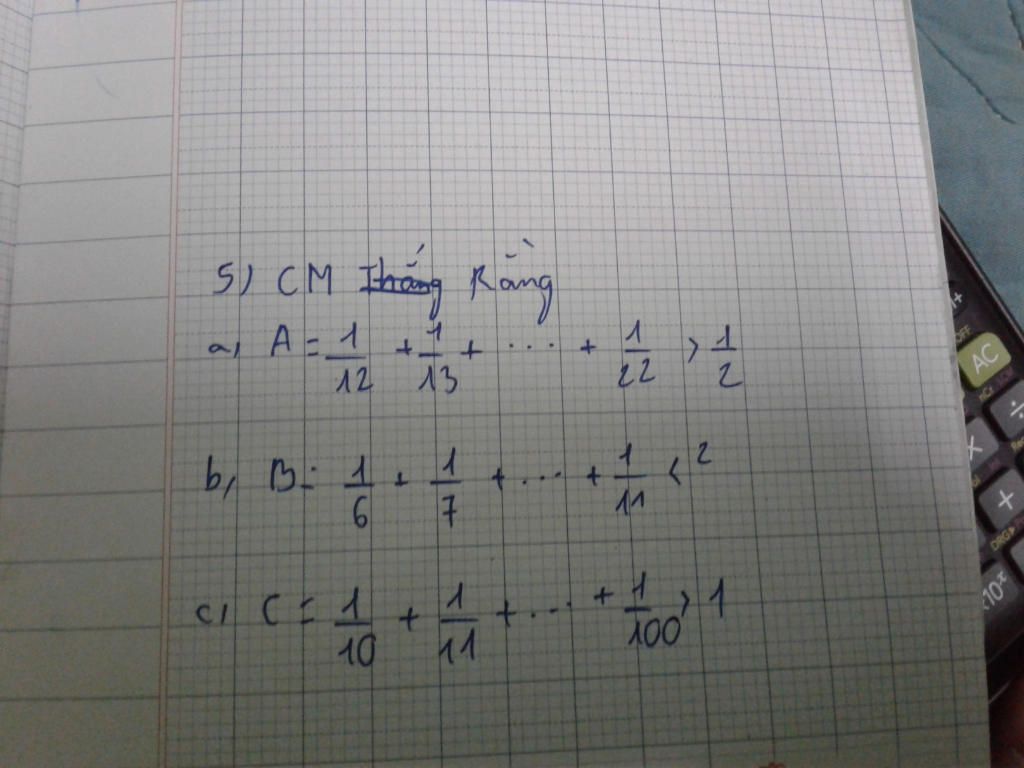 5) CM Rằng
a, A = 1/12 + 1/13 + ... + 1/22 > 1/2
b, B = 1/6 + 1/7 + ... + 1/11 < 2
c, C = 1/10 + 1/11 + ... + 1/100 > 1
OFF
AC
÷
×
+
DRG▸
×10ˣ